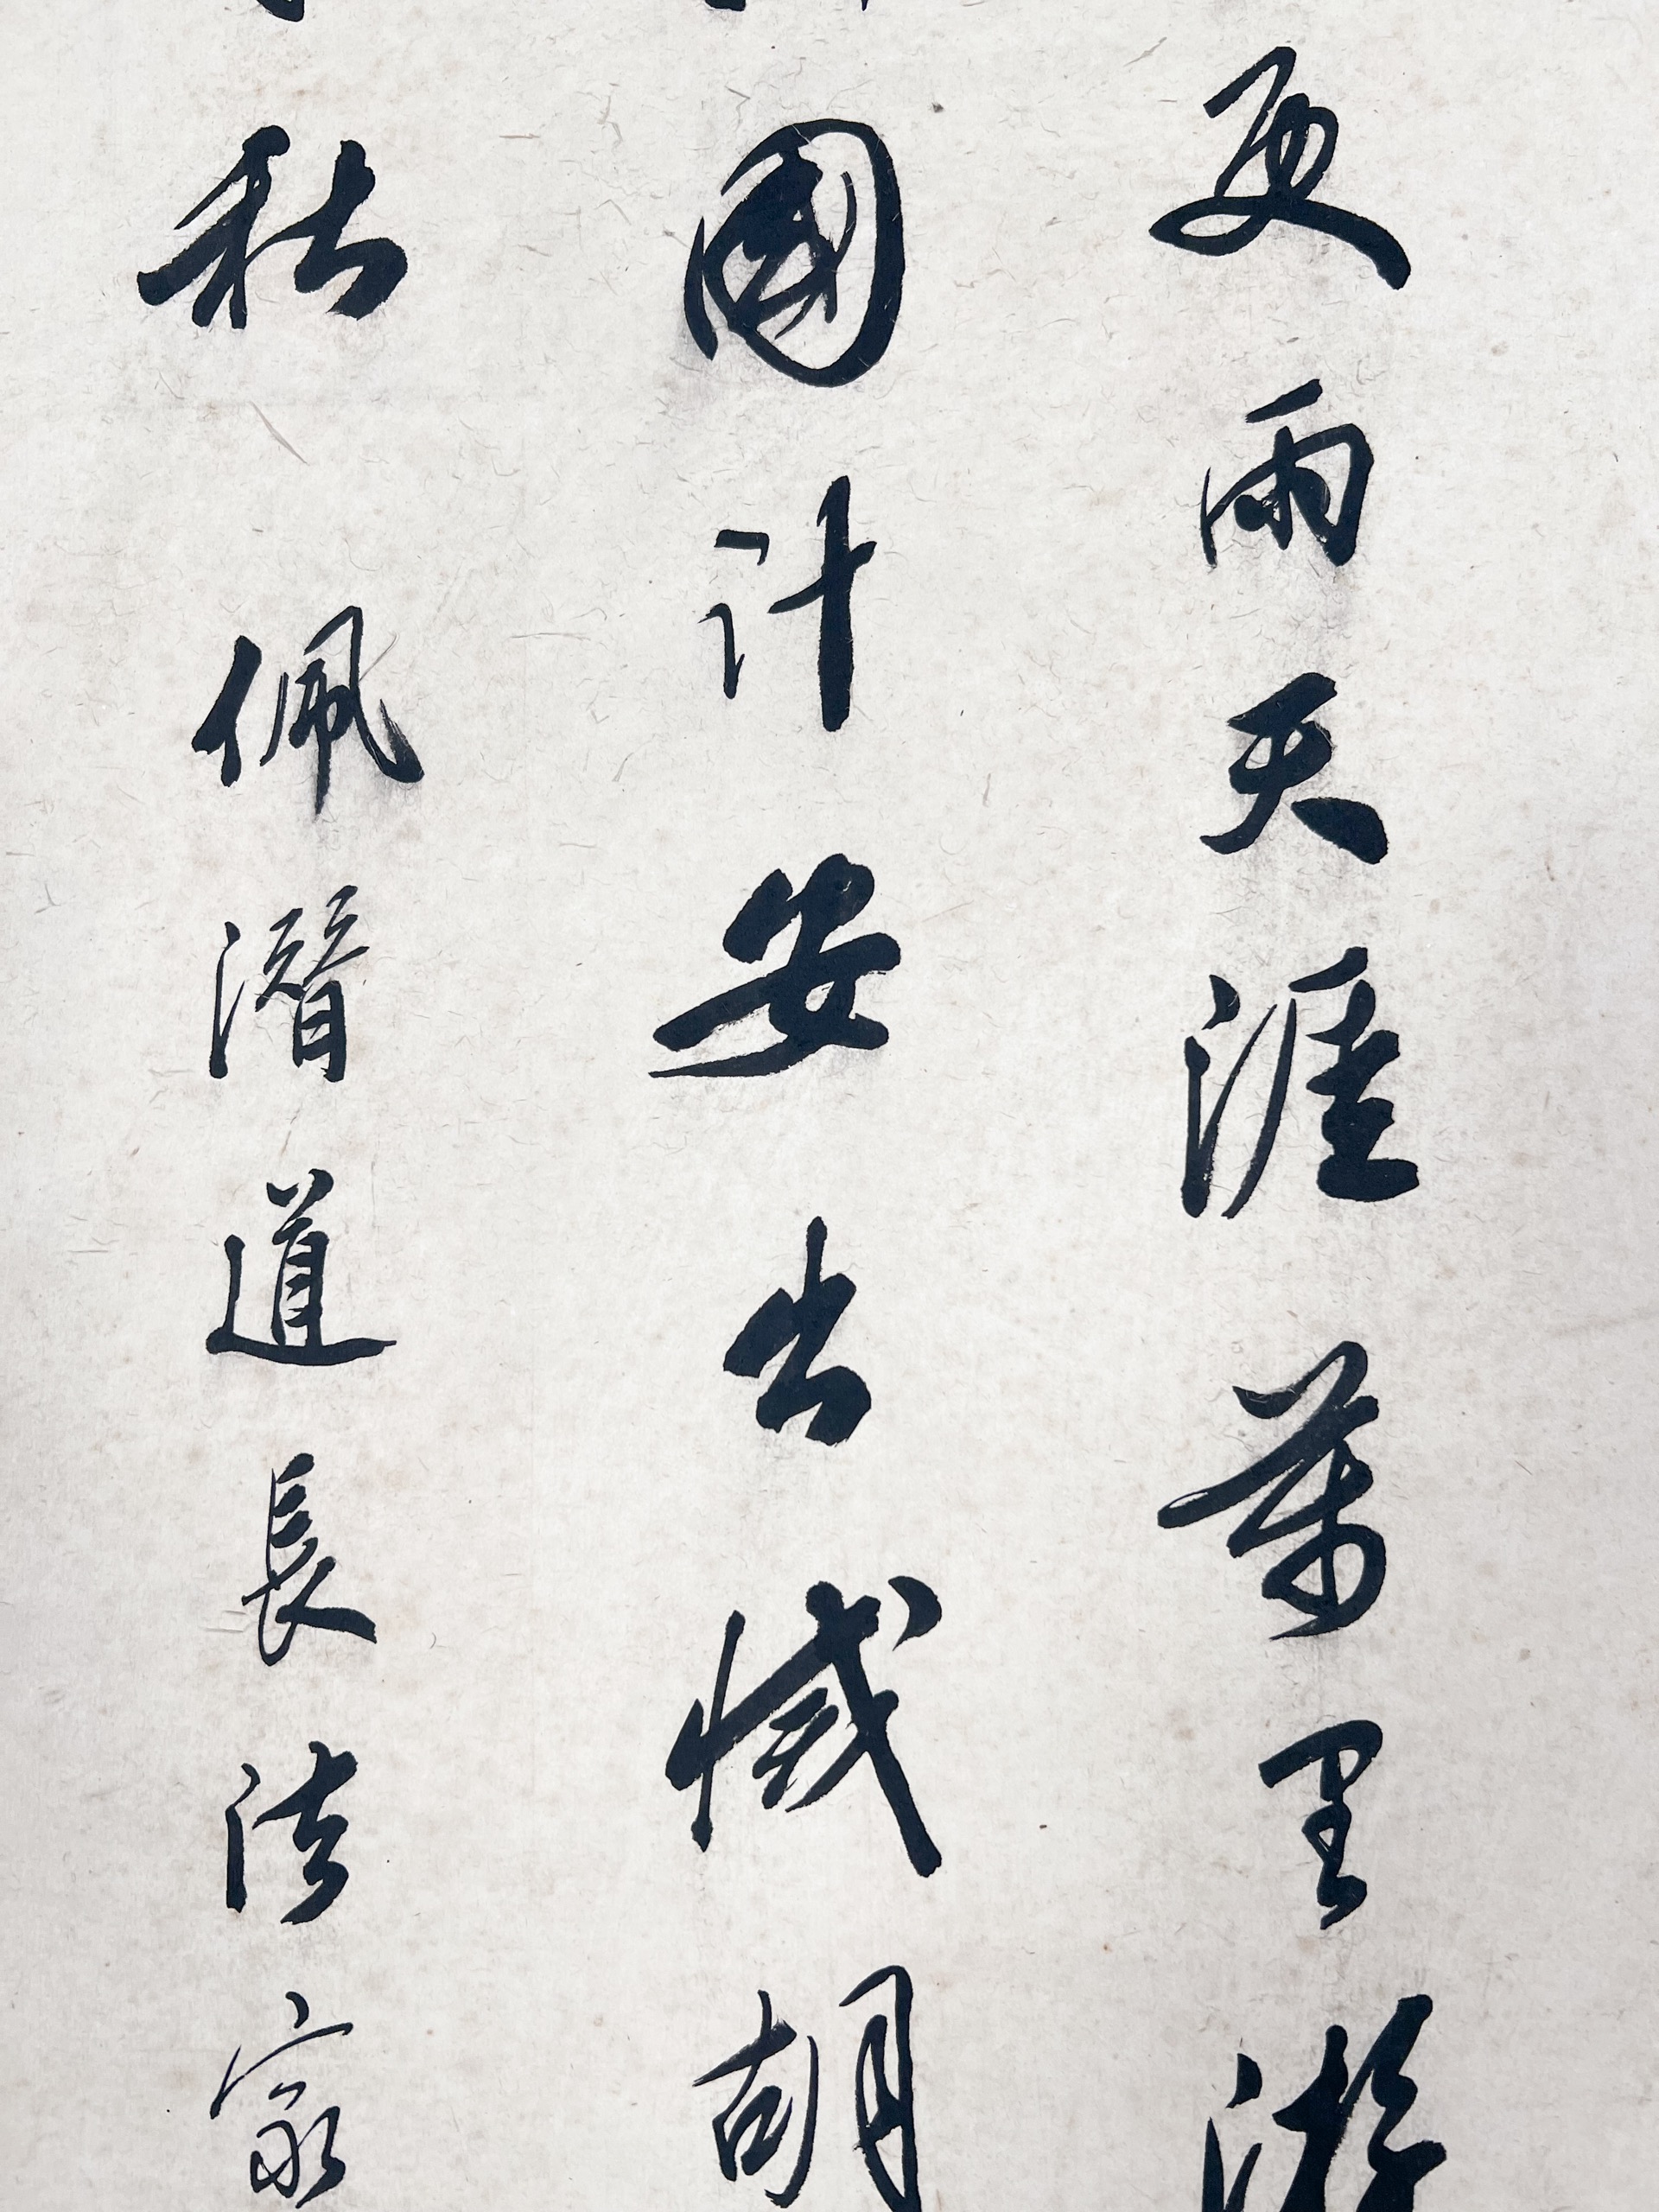 更雨天涯萬里游
國計安出滅胡
秋 佩潛道長法家